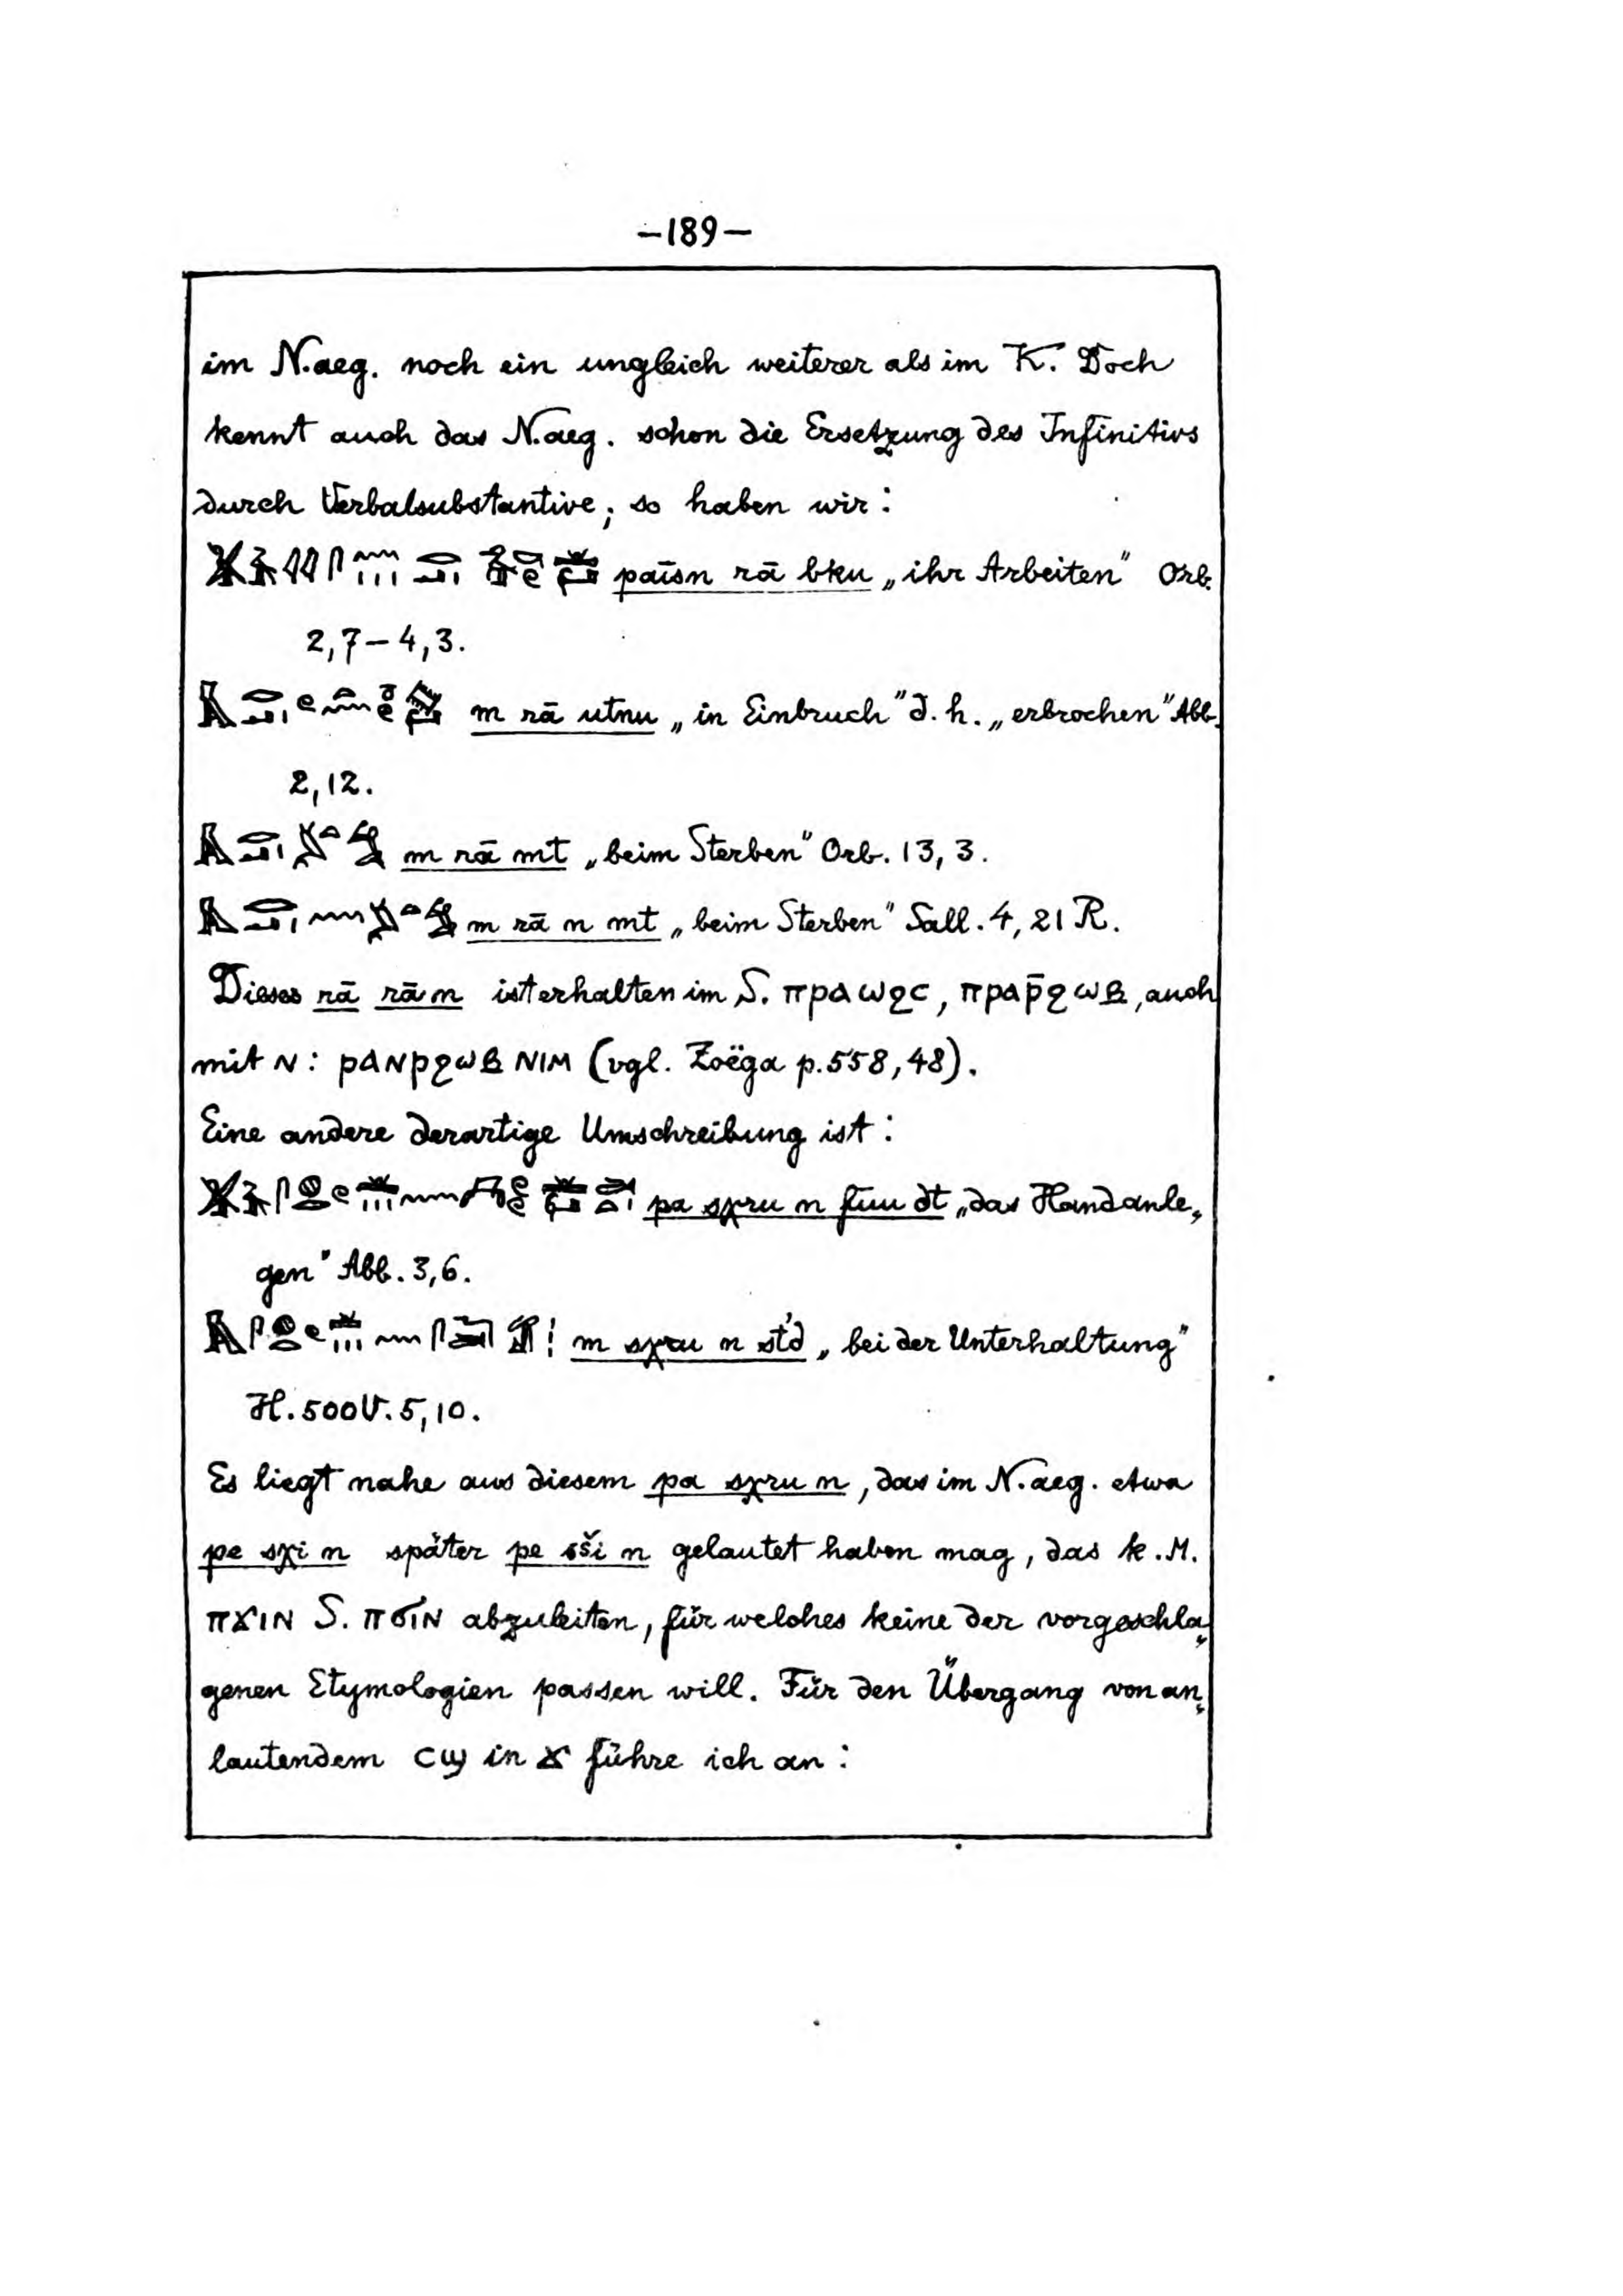 –189–
im N.aeg. noch ein ungleich weiterer als im K. Doch
kennt auch das N.aeg. schon die Ersetzung des Infinitivs
durch Verbalsubstantive; so haben wir:
païsn rā bku „ihr Arbeiten" Orb.
2,7–4,3.
m rā utnu „in Einbruch" d. h. „erbrochen" Abb.
2,12.
m rā mt „beim Sterben" Orb. 13, 3.
m rā n mt „beim Sterben" Sall. 4, 21 R.
Dieses rā rā n ist erhalten im S. ⲡⲣⲁⲱϩⲥ, ⲡⲣⲁⲣ̄ϩⲱⲃ, auch
mit ⲛ: ⲣⲁⲛⲣϩⲱⲃ ⲛⲓⲙ (vgl. Zoëga p.558,48).
Eine andere derartige Umschreibung ist:
pa sχru n fuu dt „das Handanle„
gen" Abb. 3,6.
m sχru n st'd „bei der Unterhaltung"
H. 500 V. 5,10.
Es liegt nahe aus diesem pa sχru n, das im N.aeg. etwa
pe sχi n später pe sši n gelautet haben mag, das k. M.
ⲡϫⲓⲛ S. ⲡϭⲓⲛ abzuleiten, für welches keine der vorgeschla„
genen Etymologien passen will. Für den Übergang von an„
lautendem ⲥϣ in ϫ führe ich an: